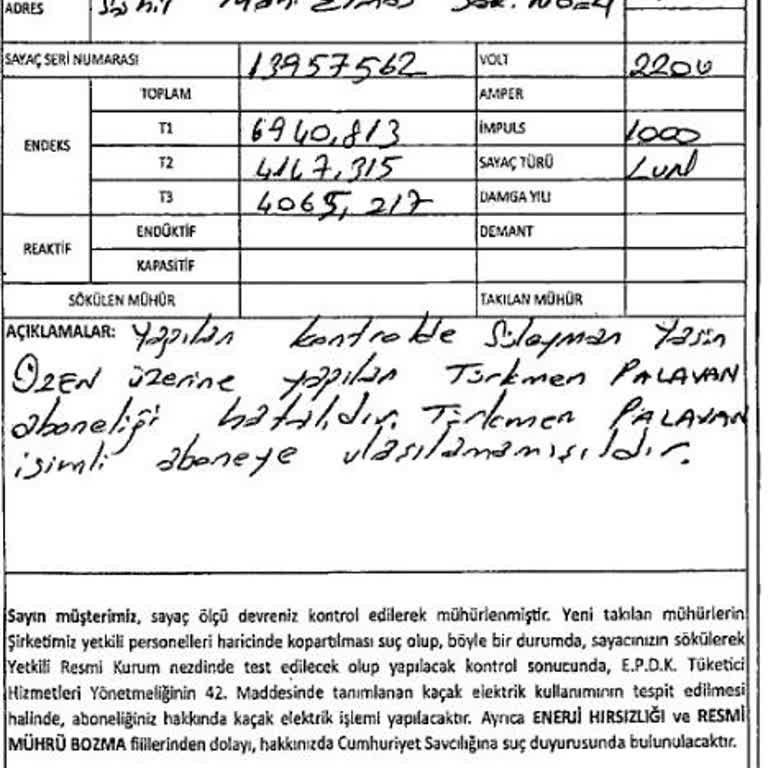 ADRES Sok. No: 4
SAYAÇ SERİ NUMARASI 13957562 VOLT 220V
TOPLAM AMPER
ENDEKS T1 6940,813 İMPULS 1000
T2 4167,315 SAYAÇ TÜRÜ LUN
T3 4065,217 DAMGA YILI
REAKTİF ENDÜKTİF DEMANT
KAPASİTİF
SÖKÜLEN MÜHÜR TAKILAN MÜHÜR
AÇIKLAMALAR: Yapılan kontrolde Süleyman Yasin
ÖZEN üzerine yapılan Türkmen PALAVAN
aboneliği hatalıdır. Türkmen PALAVAN
isimli aboneye ulaşılamamışıldır.
Sayın müşterimiz, sayaç ölçü devreniz kontrol edilerek mühürlenmiştir. Yeni takılan mühürlerin
Şirketimiz yetkili personelleri haricinde kopartılması suç olup, böyle bir durumda, sayacınızın sökülerek
Yetkili Resmi Kurum nezdinde test edilecek olup yapılacak kontrol sonucunda, E.P.D.K. Tüketici
Hizmetleri Yönetmeliğinin 42. Maddesinde tanımlanan kaçak elektrik kullanımının tespit edilmesi
halinde, aboneliğiniz hakkında kaçak elektrik işlemi yapılacaktır. Ayrıca ENERJİ HIRSIZLIĞI ve RESMİ
MÜHRÜ BOZMA fiillerinden dolayı, hakkınızda Cumhuriyet Savcılığına suç duyurusunda bulunulacaktır.